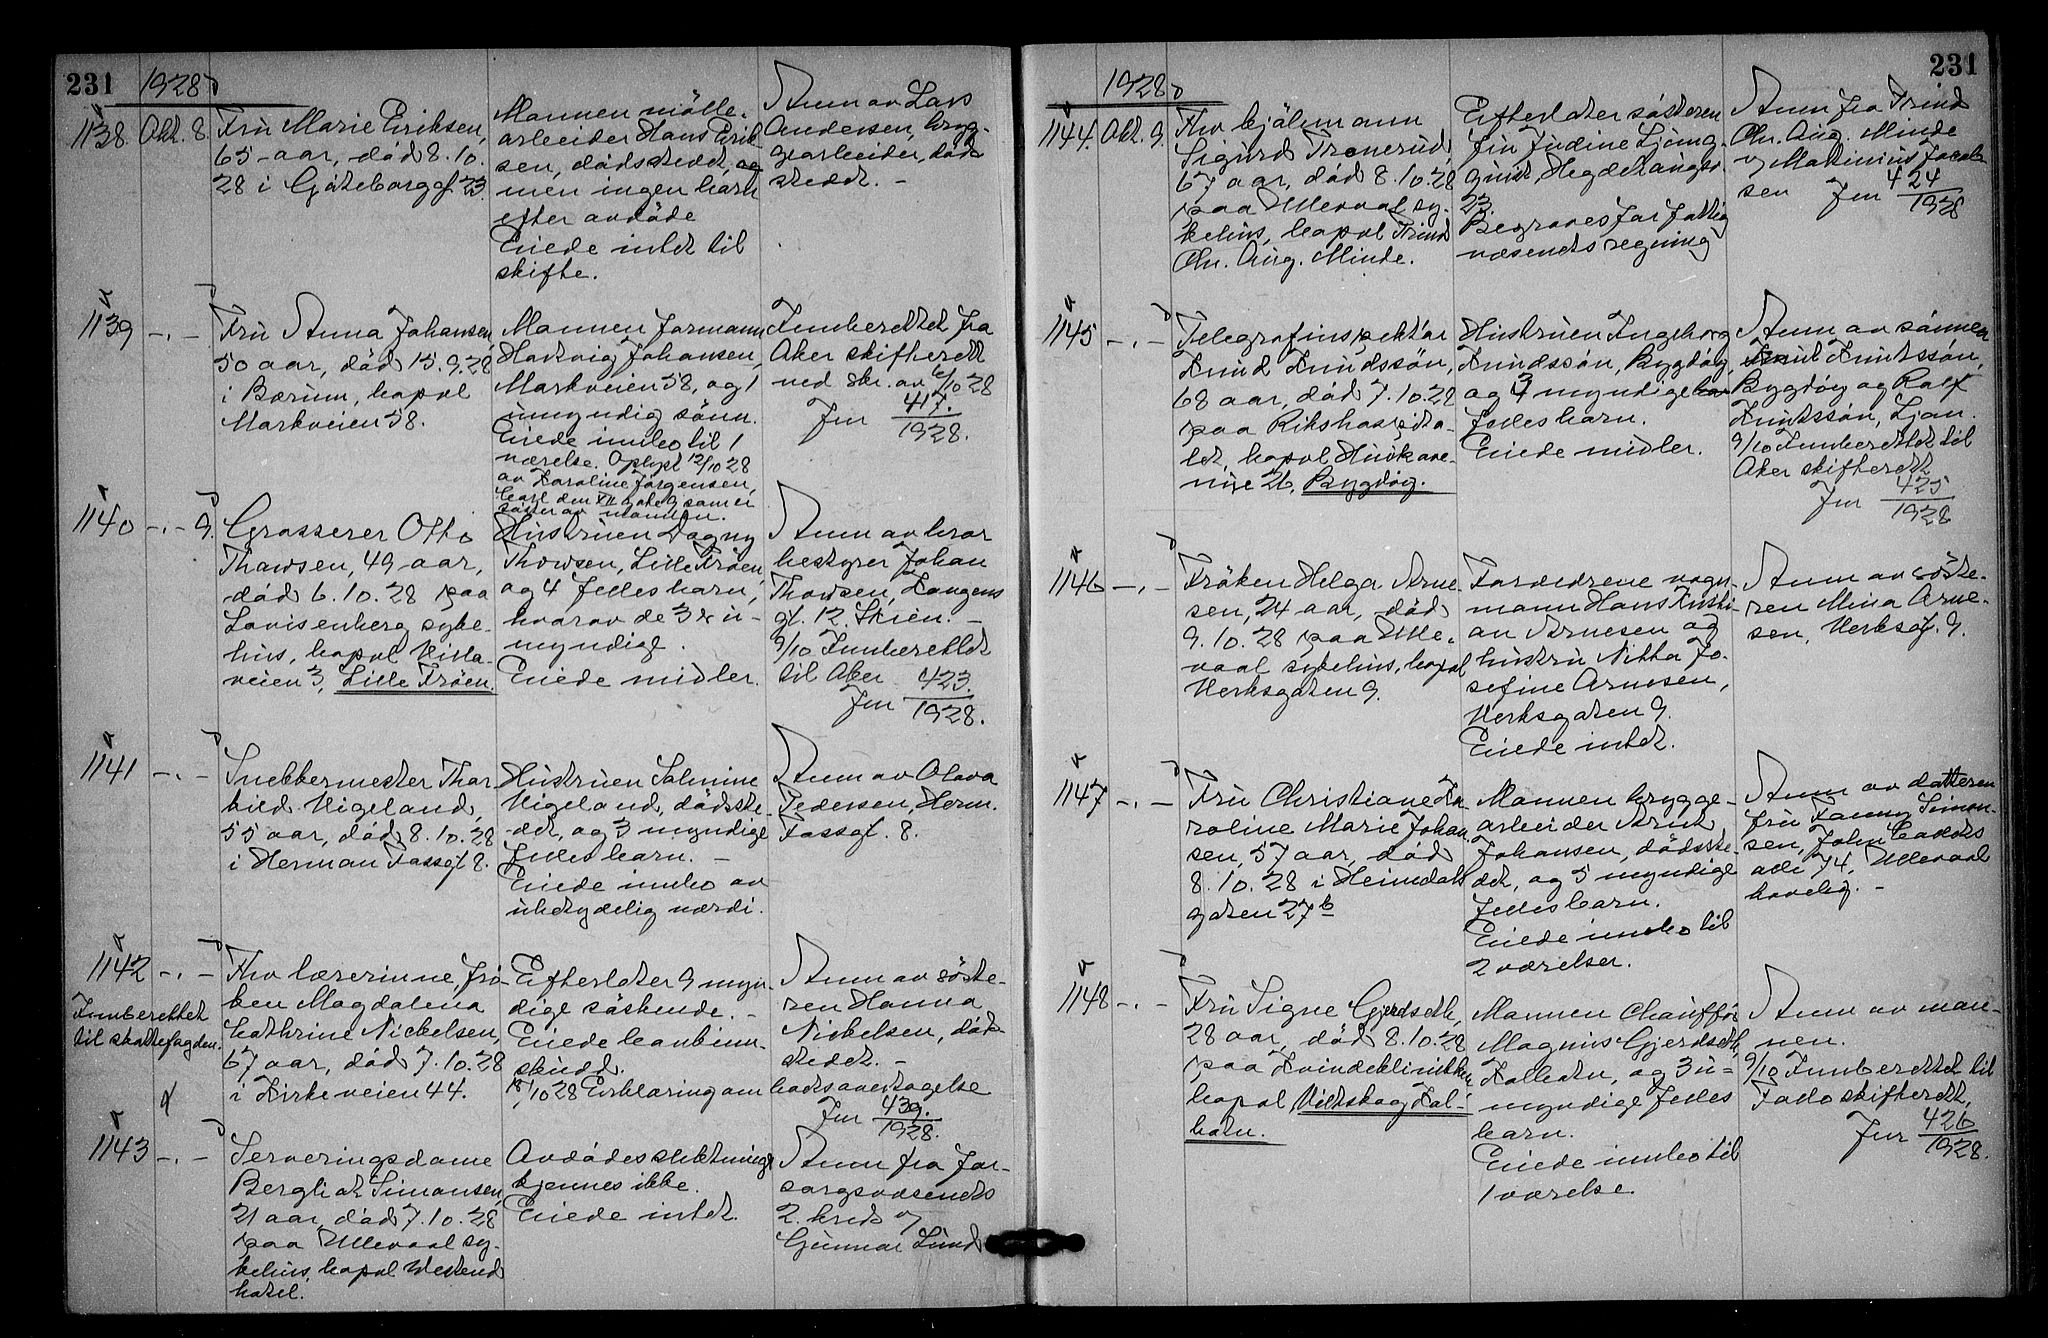 231
1928
1138. Okt. 8.
Fru Marie Eriksen,
65 aar, död 8.10.
28 i Göteborggt. 23.
Mannen mölle-
arbeider Hans Erik-
sen, dödsstedet, og
men ingen barn
efter avdöde
Eiede intet til
skifte.
Anm av Lars
Andersen, bryg-
gearbeider, döds
stedet. -
1139 -.-
Fru Anna Johansen
50 aar, död 15.9.28
i Bærum, bopæl
Markveien 58.
Mannen formann
Hartvig Johansen,
Markveien 58, og 1
umyndig sönn.
Eiede innbo til 1
værelse. Oplyst 12/10 28
av Karoline Jörgensen,
Carl den XII gate 9 som er
söster av mannen.
Innberettet fra
Aker skifterett
ved skr. av 6/10 28
Jnr 417.
1928.
1140 -.- 9.
Grosserer Otto
Thowsen, 49 aar,
död 6.10.28 paa
Lovisenberg syke-
hus, bopæl Villa-
veien 3, Lille Fröen.
Hustruen Dagny
Thowsen, Lille Fröen
og 4 felles barn,
hvorav de 3 er u-
myndige.
Eiede midler.
Anm av bror
bestyrer Johan
Thowsen, Kongens
gt. 12. Skien. -
9/10 Innberettet
til Aker
Jnr 423.
1928.
1141 -.-
Snekkermester Thor
bild Vigeland,
55 aar, död 8.10.28
i Herman Fossgt 8.
Hustruen Salmine
Vigeland, dödsste-
det, og 3 myndige
felles barn. -
Eiede innbo av
ubetydelig værdi.
Anm av Olava
Pedersen, Herm.
Fossgt. 8.
1142 -.-
Innberettet
til skattefogden.
Fhv lærerinne, frö-
ken Magdalena
Cathrine Nickelsen,
67 aar, död 7.10.28
i Kirkeveien 44.
Efterlater 9 myn
dige söskende. -
Eiede bankinn-
skudd.
15/10 28 Erklæring om bo's overtagelse
Anm av söste-
ren Hanna
Nickelsen, döds
stedet. -
Jnr 439.
1928.
1143 -.-
Serveringsdame
Bergliot Simonsen,
21 aar, död 7.10.28
paa Ullevaal sy-
kehus, bopæl Westend
hotel.
Avdödes slektninge
kjennes ikke.
Eiede intet.
Anm fra for-
sorgsvæsenets
2. kreds og
Gunnar Lund
231
1928
1144. Okt. 9.
Fhv hjälmann
Sigurd Tronerud,
67 aar, död 8.10.28
paa Ullevaal sy-
kehus, bopæl Prinds
Chr. Aug. Minde.
Efterlater sösteren
fru Judine Ljung-
quist, Hegdehaugsv.
23.
Begraves for fattig
væsenets regning
Anm fra Prinds
Chr. Aug. Minde
og Martinius Jacob
sen Jnr 424
1928
1145 -.-
Telegrafinspektör
Knud Knudssön,
68 aar, död 7.10.28
paa Rikshospita-
let, bopæl Huk ave-
nue 26, Bygdöy.
Hustruen Ingeborg
Knudssön, Bygdöy,
og 3 myndige
felles barn.
Eiede midler.
Anm av sönnen
Knutssön,
Bygdöy og Ralf
Knutssön, Ljan.
9/10 Innberettet til
Aker skifterett
Jnr 425
1928
1146 -.-
Fröken Helga Arne-
sen, 24 aar, död
9.10.28 paa Ulle-
vaal sykehus, bopæl
Verksgaten 9.
Forældrene vogn
mann Hans Kristi-
an Arnesen og
hustru Nikka Jo-
sefine Arnesen,
Verksgaten 9.
Eiede intet.
Anm av söste-
ren Mina Arne-
sen, Verksgt. 9.
1147 -.-
Fru Christiane Ka
roline Marie Johan
sen, 57 aar, död
8.10.28 i Heimdals
gaten 27b
Mannen brygge-
arbeider Arnt
Johansen, dödsste-
det, og 5 myndige
felles barn.
Eiede innbo til
2 værelser.
Anm av datteren
fru Fanny Simon-
sen, John Colletts
allé 74, Ullevaal
haveby. -
1148 -.-
Fru Signe Gjerdseth,
28 aar, död 8.10.28
paa Kvindeklinikken,
bopæl, Vittskog Kol-
botn.
Mannen Chaufför
Magnus Gjerdseth,
Kolbotn, og 3 u-
myndige felles
barn.
Eiede innbo til
1 værelse.
Anm av man-
nen.
9/10 Innberettet til
Follo skifterett,
Jnr 426
1928.